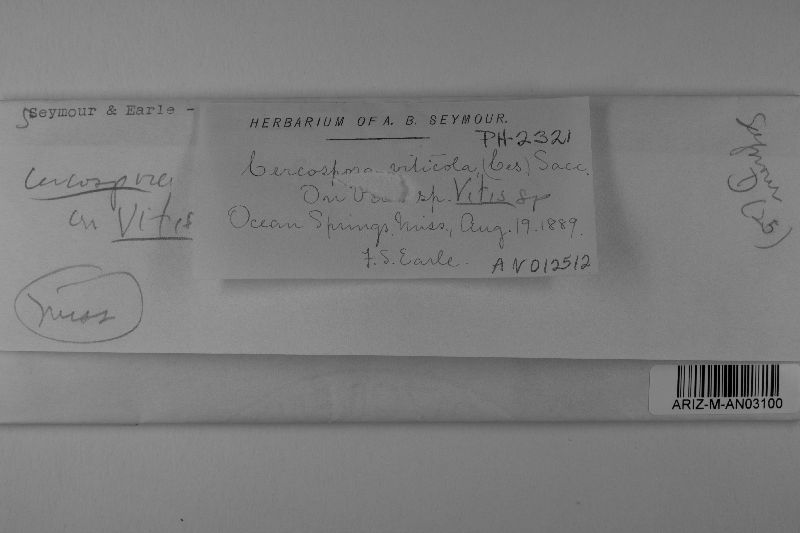 Seymour & Earle -
Cercospora
on Vitis
Miss
HERBARIUM OF A. B. SEYMOUR.
PH-2321
Cercospora viticola (Ces) Sacc.
On sp. Vitis sp
Ocean Springs, Miss., Aug. 19. 1889.
F. S. Earle.
AN012512
Seymour
ARIZ-M-AN03100